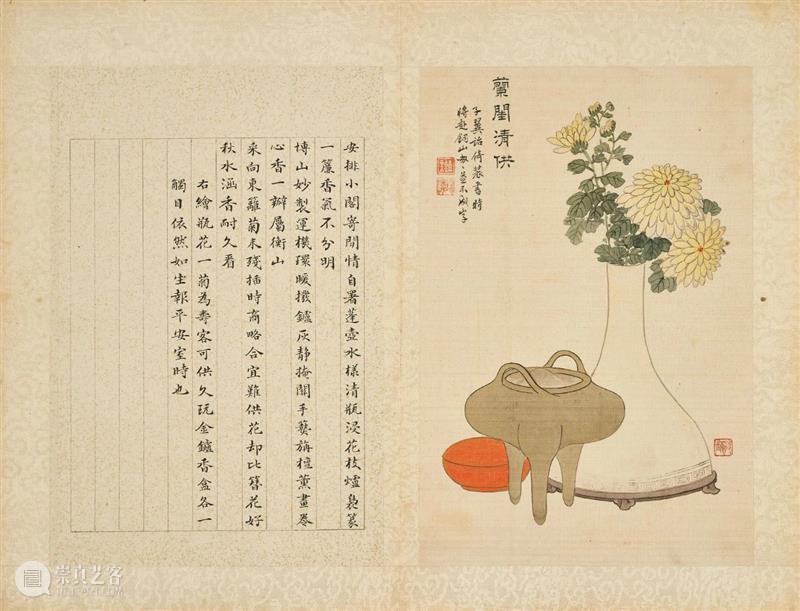 蘭閨清供
子翼詒倚裝書時
將赴銅山匆〻並不成字
安排小閣寄閒情自署蓬壺水樣清瓶浸花枝爐裊篆
一簾香氣不分明
博山妙製運機環暖撥鑪灰靜掩關手爇旃檀薰畫卷
心香一瓣屬衡山
采向東籬菊未殘插時商略合宜難供花却比簪花好
秋水涵香耐久看
右繪瓶花一菊為壽客可供久玩金鑪香盒各一
觸目依然如坐報平安室時也
崇真艺客